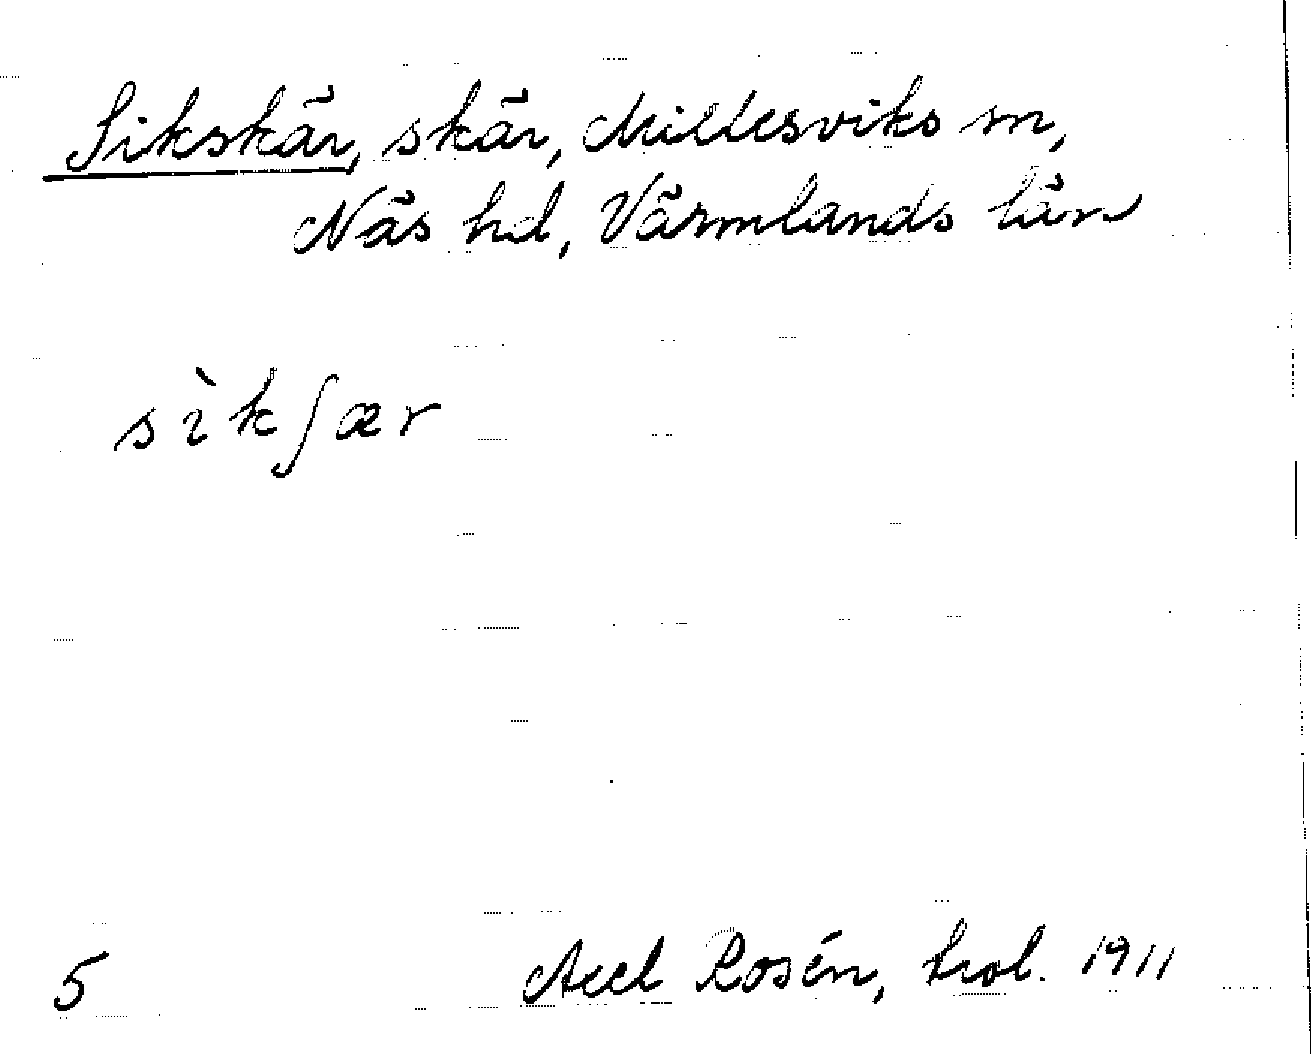 Sikskär, skär, Millesviks sn,
Näs hd, Värmlands län
sìkʃær
5 Axel Rosén, trol. 1911